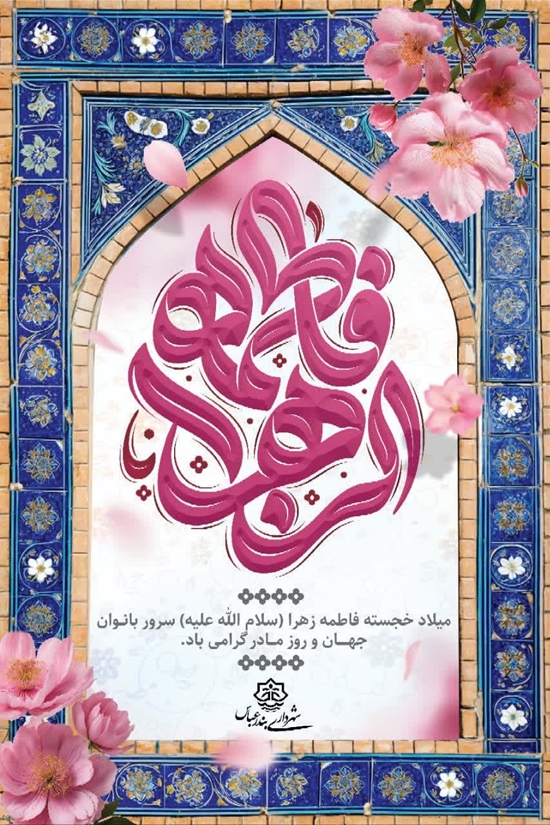 یا فاطمة الزهرا
میلاد خجسته فاطمه زهرا (سلام الله علیه) سرور بانوان
جهان و روز مادر گرامی باد.
شهرداری بندرعباس